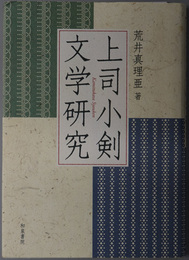 荒井真理亜 著
上司小剣
文学研究
和泉書院